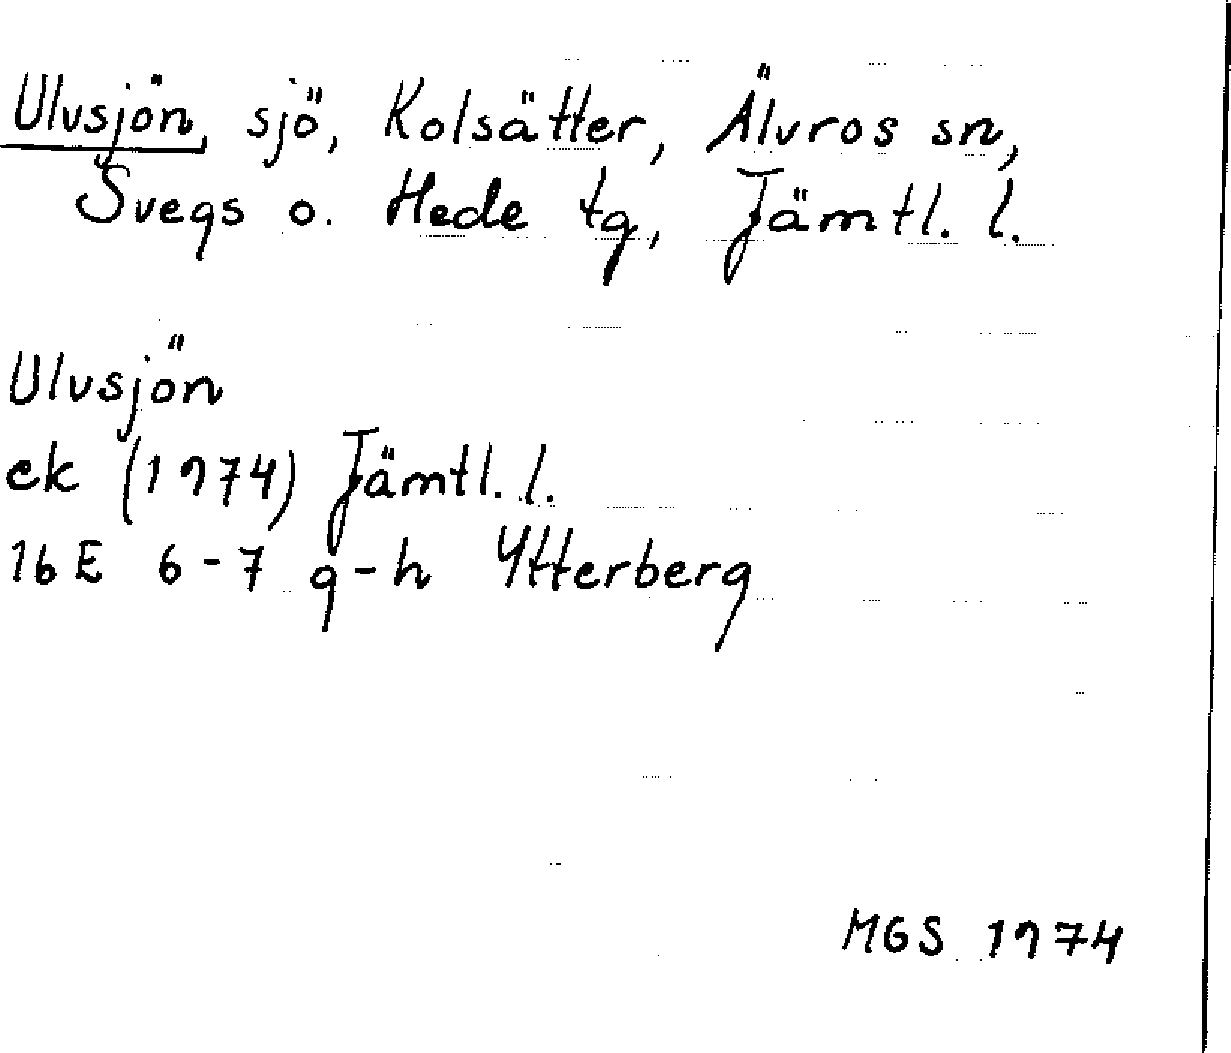 Ulvsjön, sjö, Kolsätter, Älvros sn,
Svegs o. Hede tg, Jämtl. l.
Ulvsjön
ek (1974) Jämtl. l.
16E 6-7 g-h Ytterberg
MGS 1974